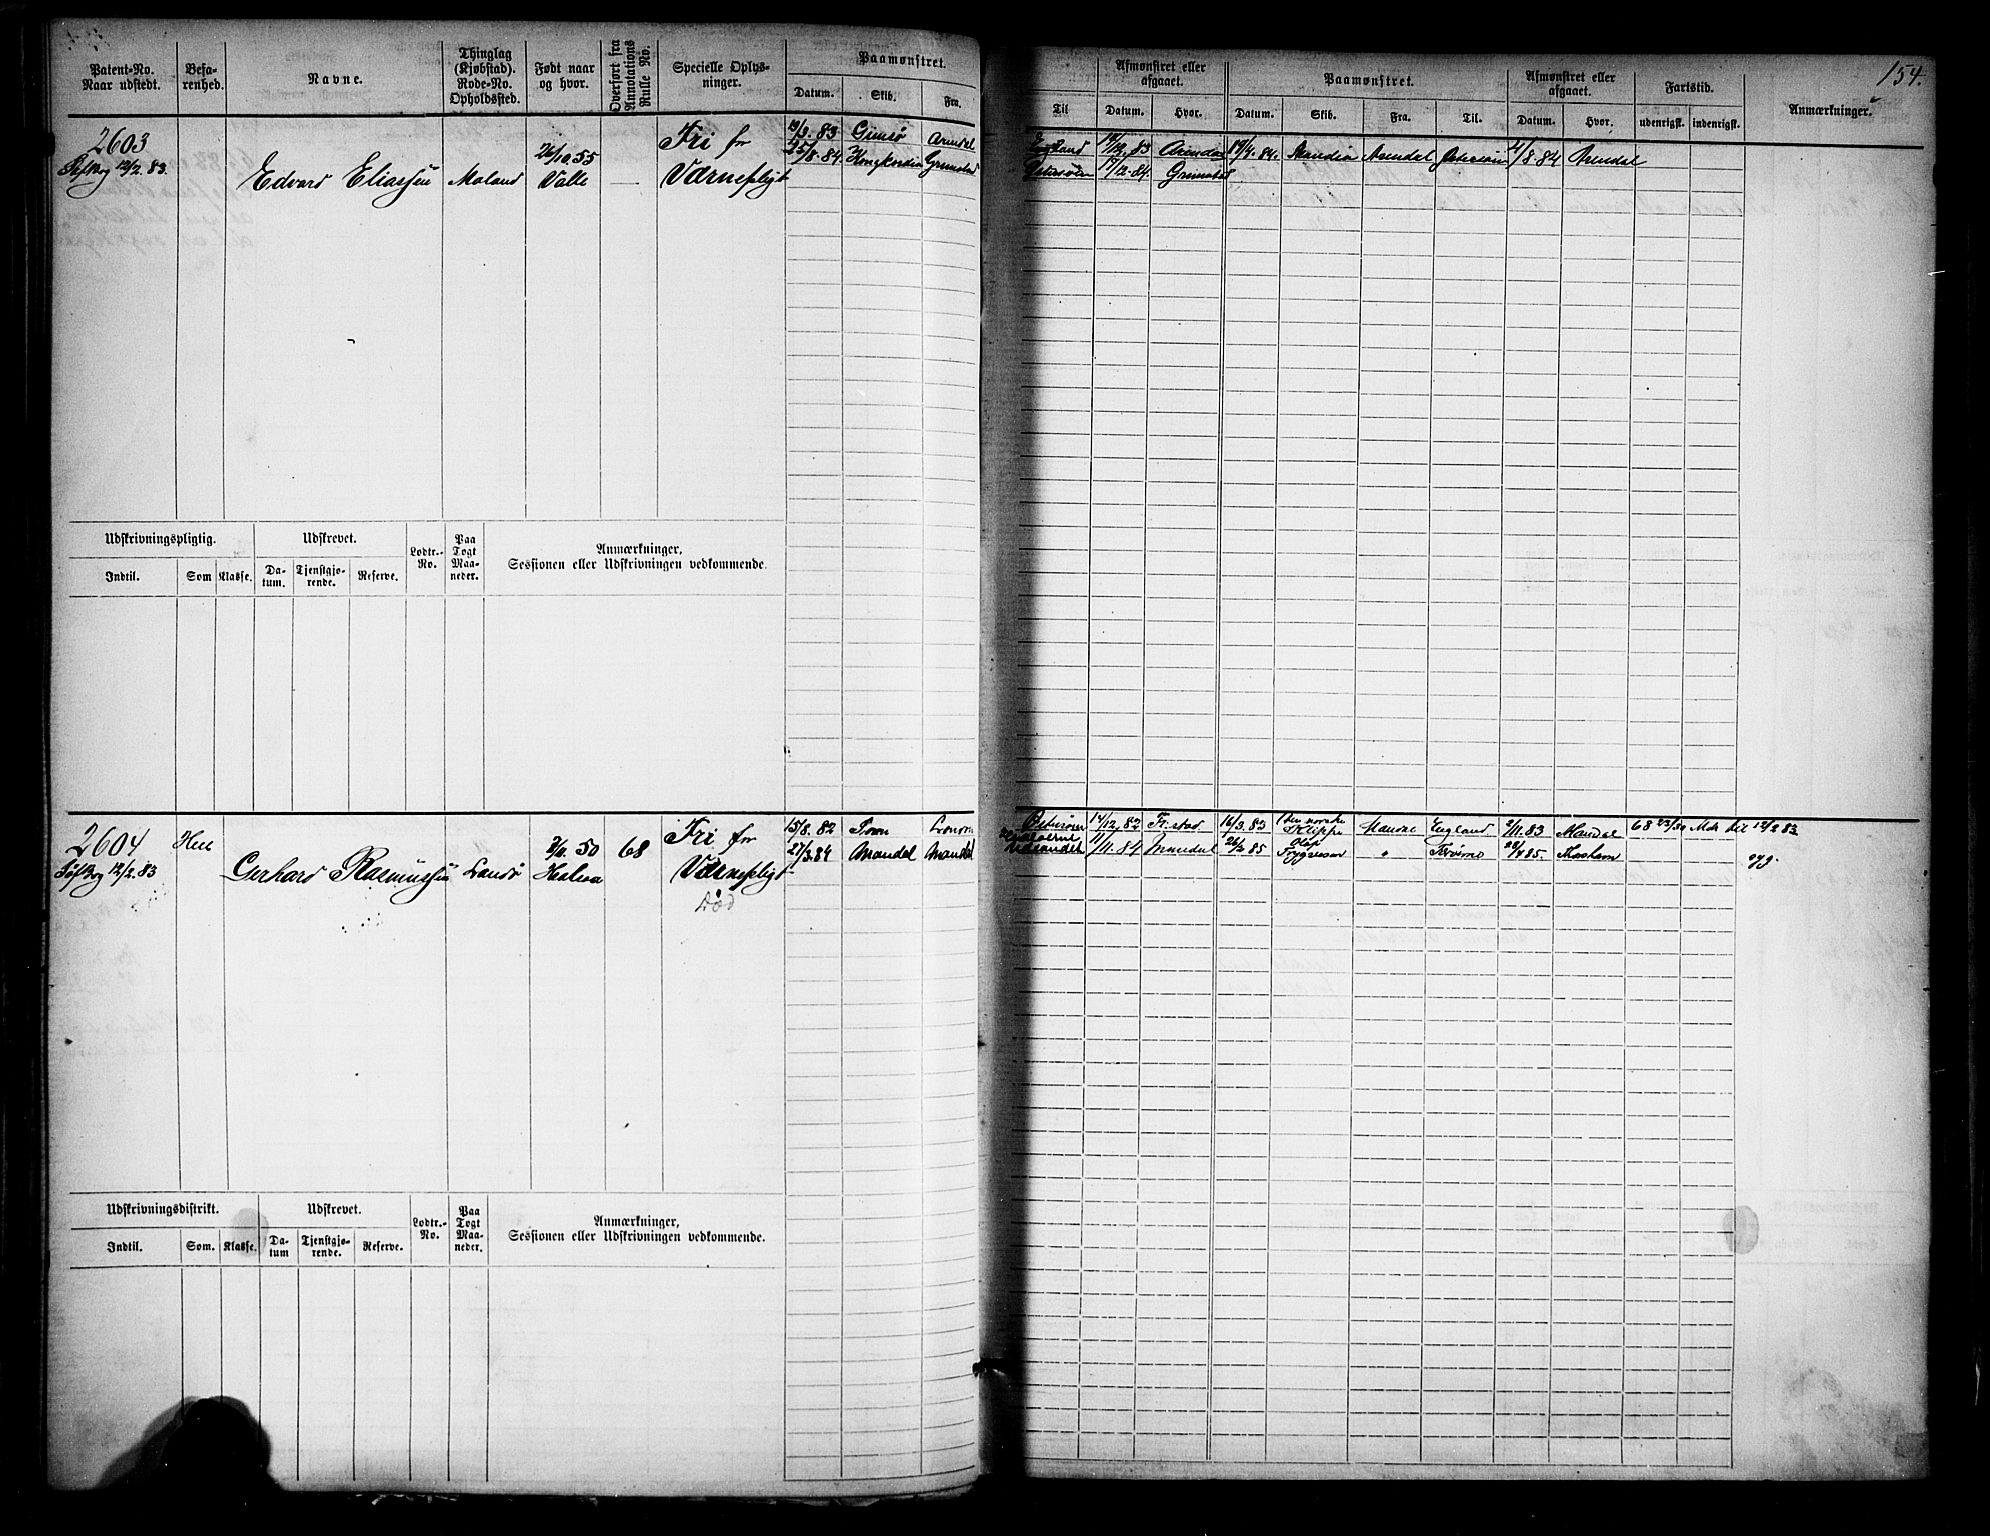 154.
Patent-No. Naar udstedt.
Befarenhed.
Navne.
Thinglag (Kjøbstad). Rode-No. Opholdssted.
Født naar og hvor.
Overført fra Annotations Rulle No.
Specielle Oplysninger.
Paamønstret.
Datum. Skib. Fra. Til
Afmønstret eller afgaaet.
Datum. Hvor.
Paamønstret.
Datum. Skib. Fra. Til.
Afmønstret eller afgaaet.
Datum. Hvor.
Fartstid.
udenrigsk. indenrigsk.
Anmærkninger.
2603
12/2 83.
Edvard Eliassen
Moland
26/10 55
Valle
Fri for
Værnepligt
83 Gimsø Arendal England 83 Arendal 84. Skandia Arendal Østersøen 8.84 Arendal
25/8.84 Konkordia Grimstad Østersøen 17/12.84 Grimstad
Udskrivningspligtig.
Indtil. Som Klasse.
Udskrevet.
Datum. Tjenstgjørende. Reserve.
Lodtr.-No.
Paa Togt Maaneder.
Anmærkninger, Sessionen eller Udskrivningen vedkommende.
2604
12/2 83
Gerhard Rasmussen
Landø
50
Halsaa
68
Fri for
Værnepligt
Død
15/8.82 Østersøen 14/12.82 Fr.stad 16/3.83 Den norske Klippe Mandal England 2/11.83 Mandal 68 Mdr til 12/2 83.
27/3.84 Mandal Mandal 11/11.84 Mandal 26/2 85 Olaf Trygveson " 85.
Udskrivningsdistrikt.
Indtil. Som. Klasse.
Udskrevet.
Datum Tjenstgjørende. Reserve.
Lodtr.-No.
Paa Togt Maaneder.
Anmærkninger, Sessionen eller Udskrivningen vedkommende.